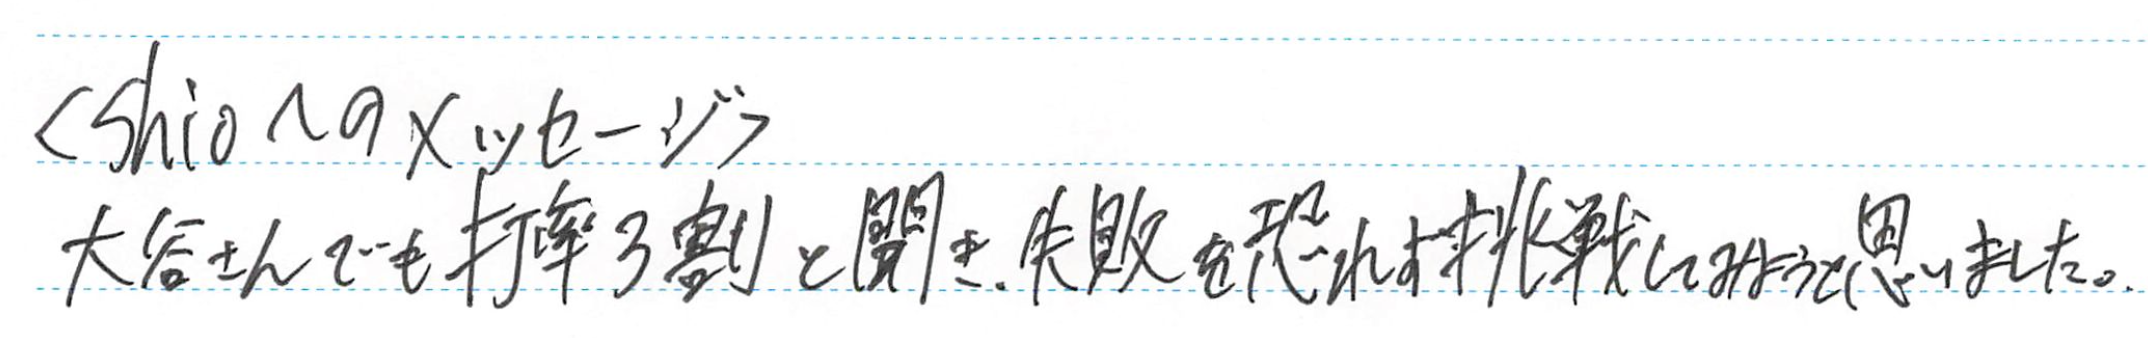 <Shioへのメッセージ>
大谷さんでも打率3割と聞き、失敗を恐れず挑戦してみようと思いました。